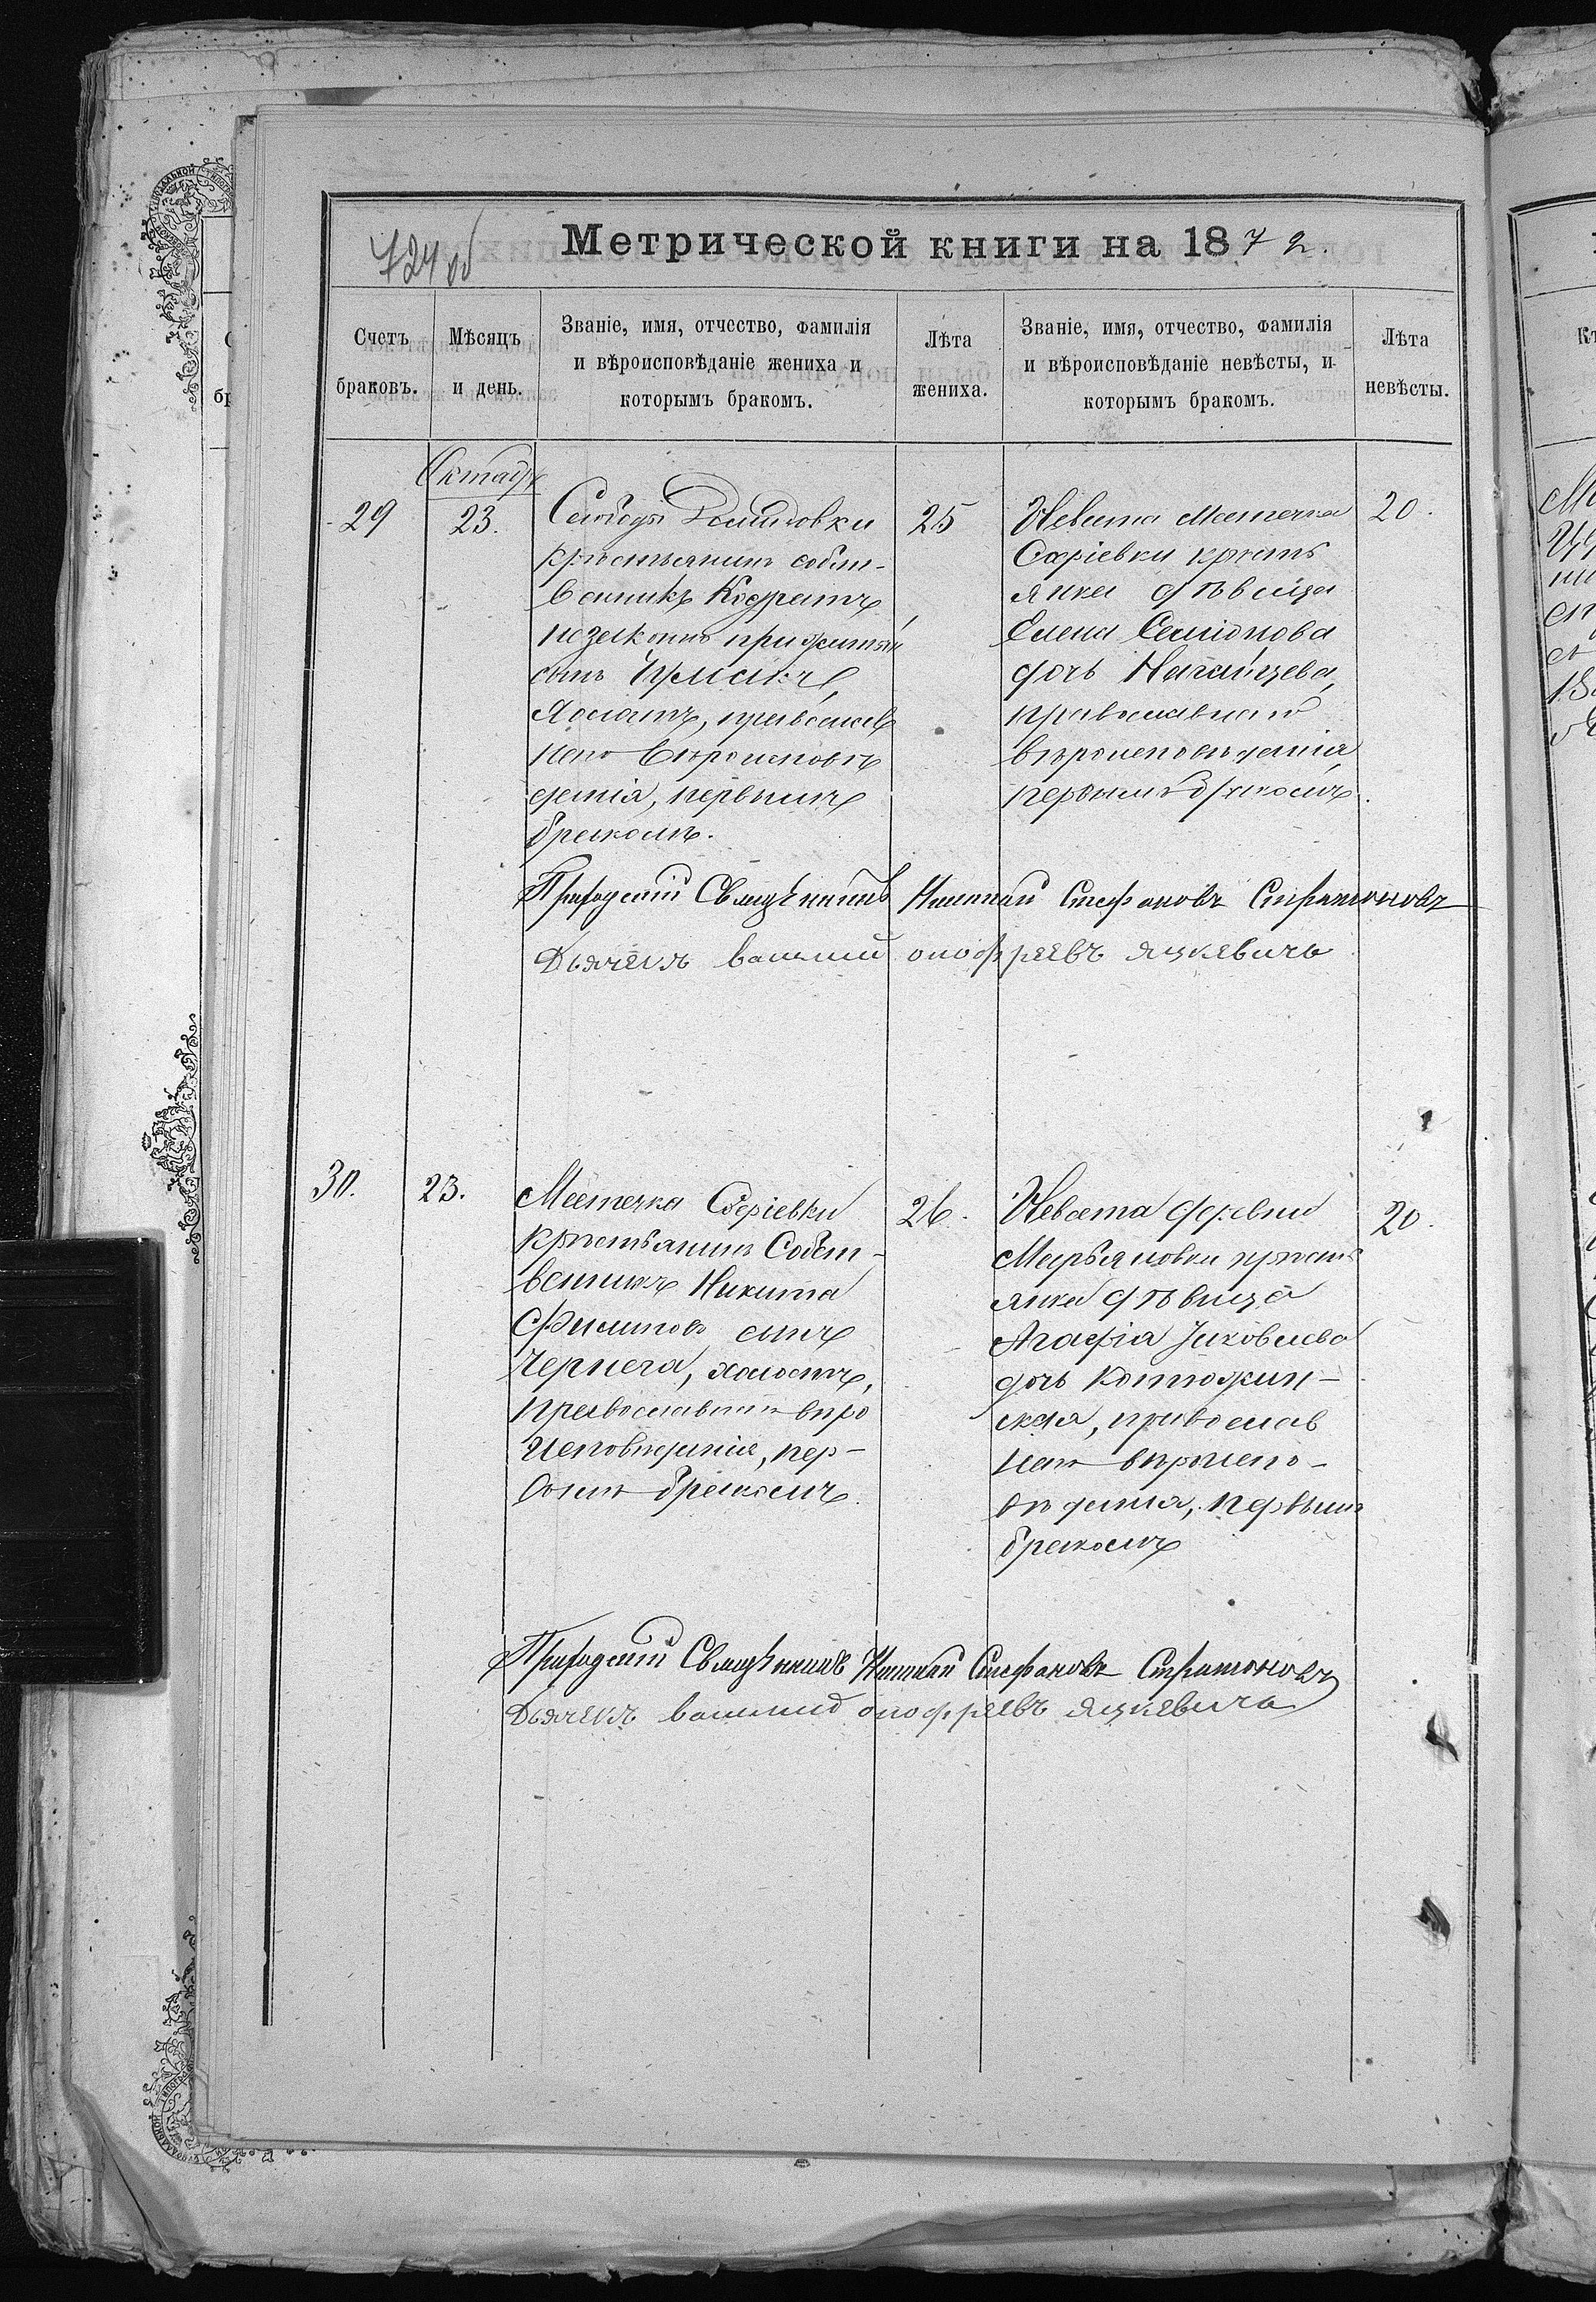 724 об
Метрической книги на 1872.
Счетъ браковъ.
Мѣсяцъ и день.
Званіе, имя, отчество, фамилія
и вѣроисповѣданіе жениха и
которымъ бракомъ.
Лѣта жениха.
Званіе, имя, отчество, фамилія
и вѣроисповѣданіе невѣсты, и
которымъ бракомъ.
Лѣта невѣсты.
Октабр
29
23.
Слободы
крестьянинъ собст-
венникъ Кодратъ
незаконно прижитый
сынъ
Холостъ, православ
наго вѣроисповѣ
данія, первымъ
бракомъ.
25
Невѣста Местечка
Софіевки крѣсть
янка дѣвица
Елена Семіонова
дочь Нагайцева,
православнаго
вѣроисповѣданія
первымъ бракомъ.
20.
Приходскій Священникъ Стефановъ Стратоновъ
Дьячекъ василий оноффреевъ яцкевичь
30.
23.
Местечка Софіевки
крѣстьянинъ Собст-
венникъ Никита
Филиповъ сынъ
Чернега, холостъ,
православнаго вѣро
исповѣданія, пер-
вымъ бракомъ.
26.
Невѣста деревни
Марьяновки крѣсть
янка дѣвица
Агафіа Іаковлева
дочь
ская, православ
наго вѣроиспо-
вѣданія, первымъ
бракомъ
20.
Приходскій Священникъ Стефановъ Стратоновъ
Дьячекъ василий оноффреевъ яцкевичь